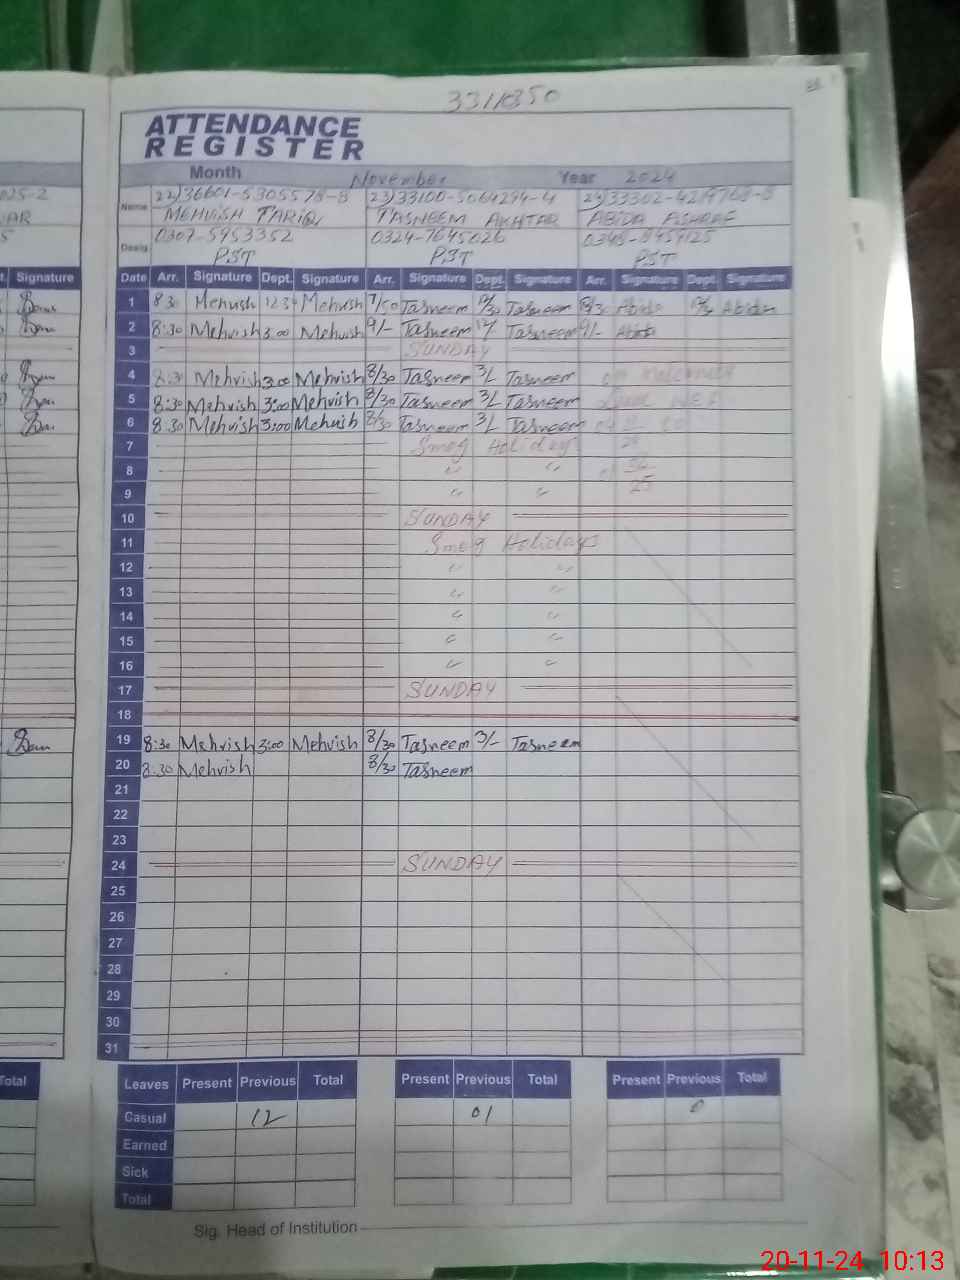 ATTENDANCE
REGISTER
Month November Year 2024
Name 22) 23) 24)
MEHVISH TARIQ TASNEEM AKHTAR ABIDA ASHRAF
Desig. 0307-5953352 0324-7645026
PST PST PST
Date Arr. Signature Dept. Signature Arr. Signature Dept. Signature Arr. Signature Dept. Signature
1 8:30 Mehvish Mehvish 7/50 Tasneem 12/30 Tasneem Abida Abida
2 8:30 Mehvish 3:00 Mehvish 9/- Tasneem 12/- Tasneem 9/- Abida
3 SUNDAY
4 8:30 Mehvish 3:00 Mehvish 8/30 Tasneem 3/- Tasneem
5 8:30 Mehvish 3:00 Mehvish 8/30 Tasneem 3/- Tasneem
6 8:30 Mehvish 3:00 Mehvish 8/30 Tasneem 3/- Tasneem
7 Smog Holiday
8 " "
9 " "
10 SUNDAY
11 Smog Holidays
12 " "
13 " "
14 " "
15 " "
16 " "
17 SUNDAY
18
19 8:30 Mehvish 3:00 Mehvish 8/30 Tasneem 3/- Tasneem
20 8:30 Mehvish 8/30 Tasneem
21
22
23
24 SUNDAY
25
26
27
28
29
30
31
Leaves Present Previous Total Present Previous Total Present Previous Total
Casual 12 01 0
Earned
Sick
Total
Sig. Head of Institution
Signature
Total
20-11-24 10:13